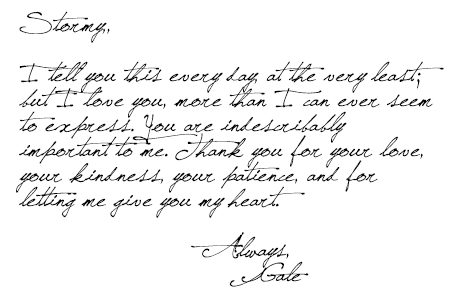 Stormy,
I tell you this every day, at the very least;
but I love you, more than I can ever seem
to express. You are indescribably
important to me. Thank you for your love,
your kindness, your patience, and for
letting me give you my heart.
Always,
Gale